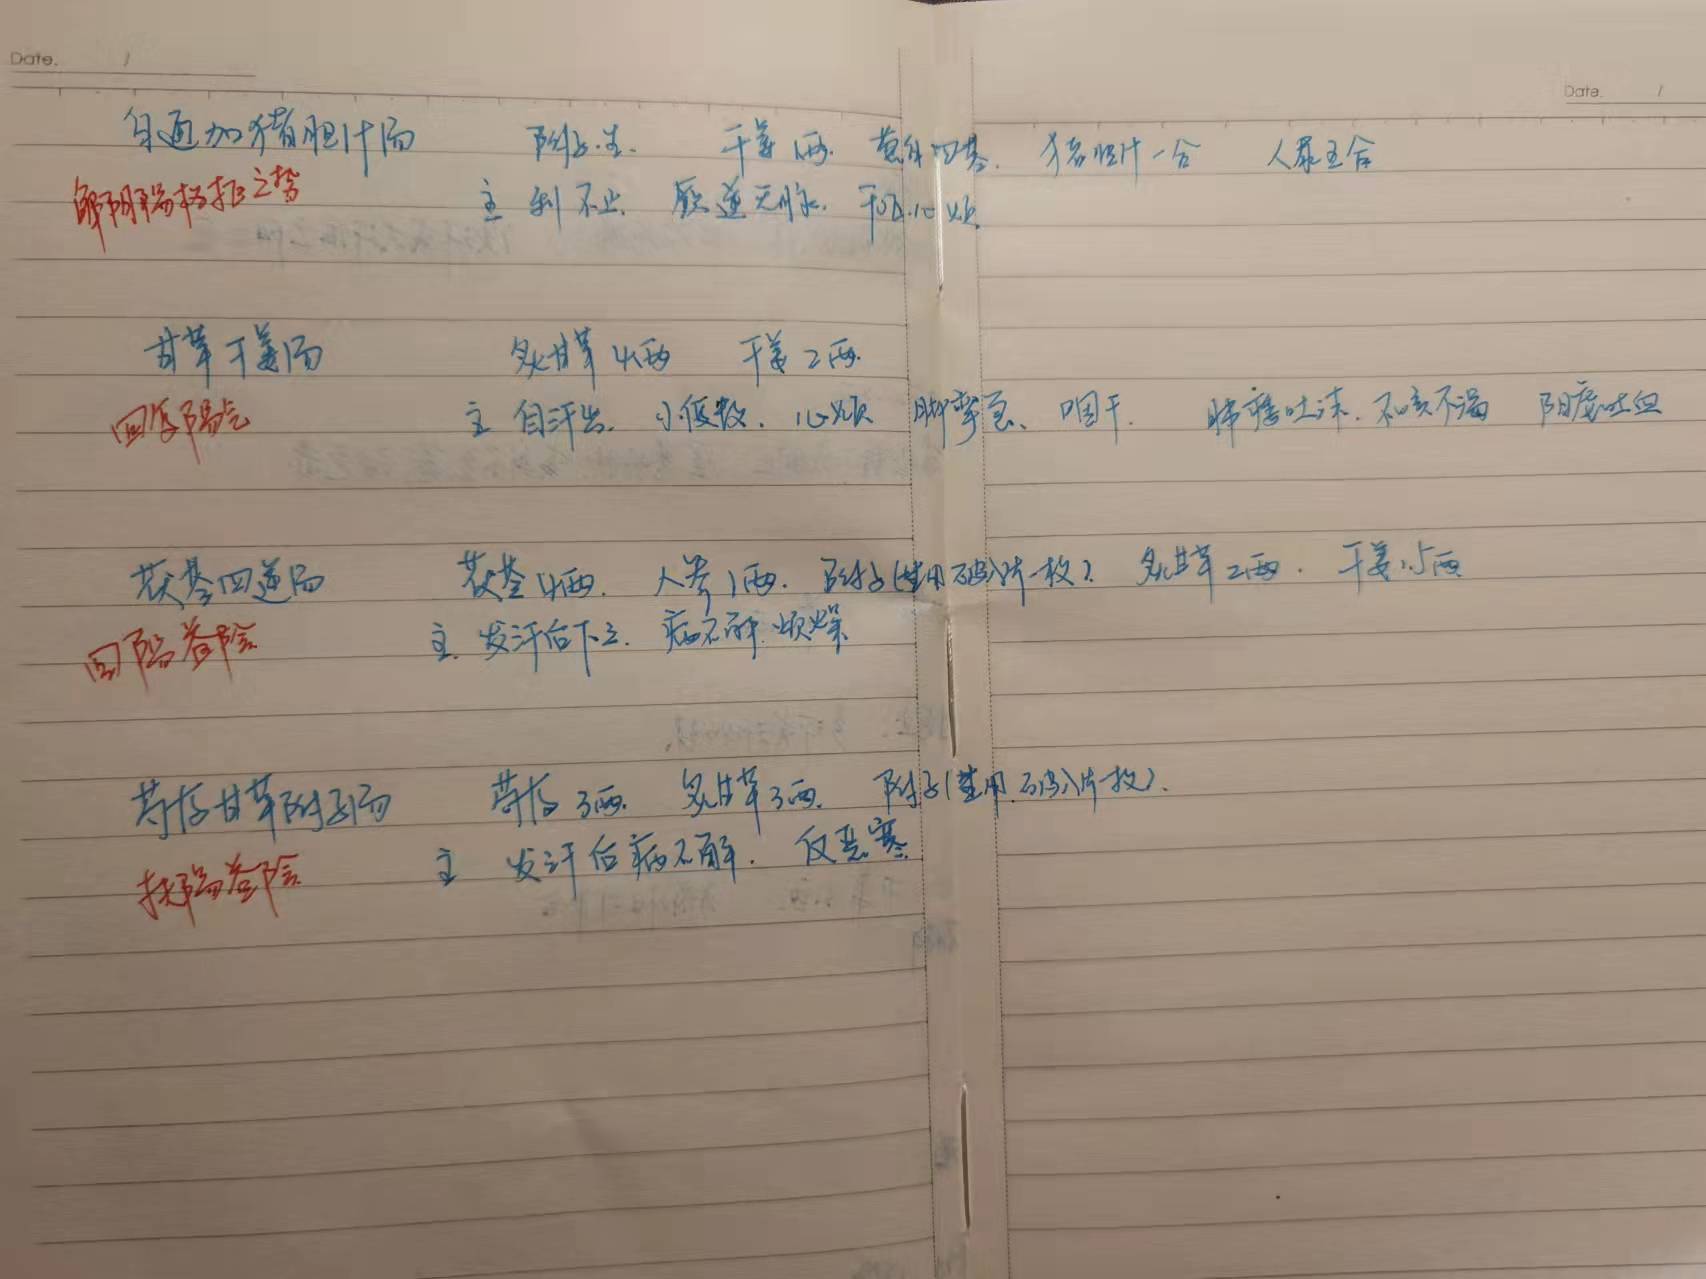 Date. /
Date. /
白通加猪胆汁汤 附子.生. 干姜1两. 葱白四茎. 猪胆汁一合 人尿五合
解阴阳格拒之势 主 利不止. 厥逆无脉. 干呕.心烦.
甘草干姜汤 炙甘草4两 干姜2两.
回复阳气 主 自汗出. 小便数. 心烦 脚挛急、咽干. 肺痿吐沫.不咳不渴 阴虚吐血
茯苓四逆汤 茯苓4两. 人参1两. 附子(生用 破八片一枚). 炙甘草2两. 干姜1.5两
回阳益阴 主. 发汗后下之. 病不解.烦燥.
芍药甘草附子汤 芍药3两. 炙甘草3两. 附子(生用.破八片一枚).
扶阳益阴 主 发汗后病不解. 反恶寒.